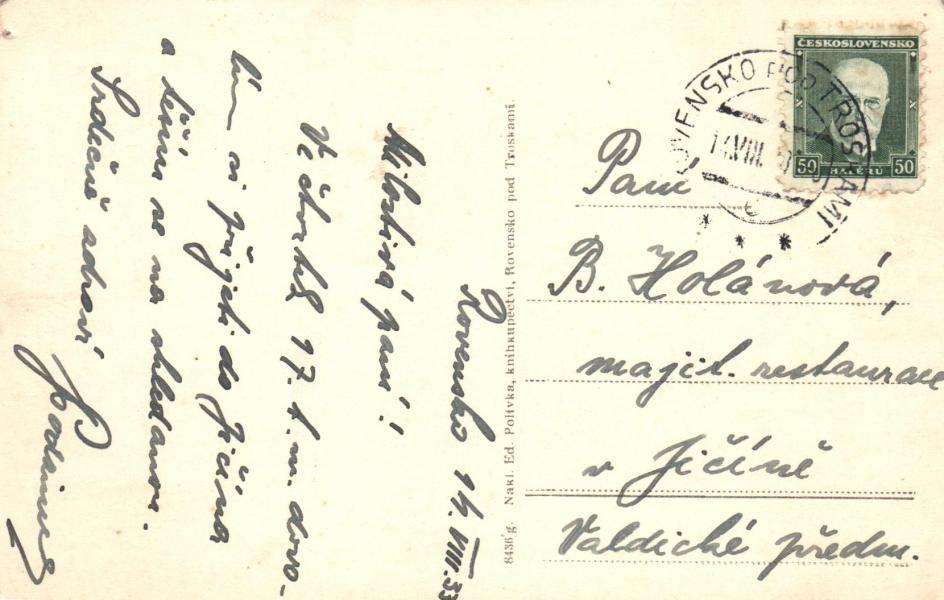 Rovensko 14.VIII.33
Milostivá paní!
Ve čtvrtek 17. t. m. dovo-
lím si přijeti do Jičína
a těším se na shledanou.
Srdečně zdraví
8436 g. Nakl. Ed. Polívka, knihkupectví, Rovensko pod Troskami.
ČESKOSLOVENSKO
50 HALÉŘŮ 50
ROVENSKO POD TROSKAMI
14.VIII.
Paní
B. Holánová,
majit. restaurace
v Jičíně
Valdické předm.